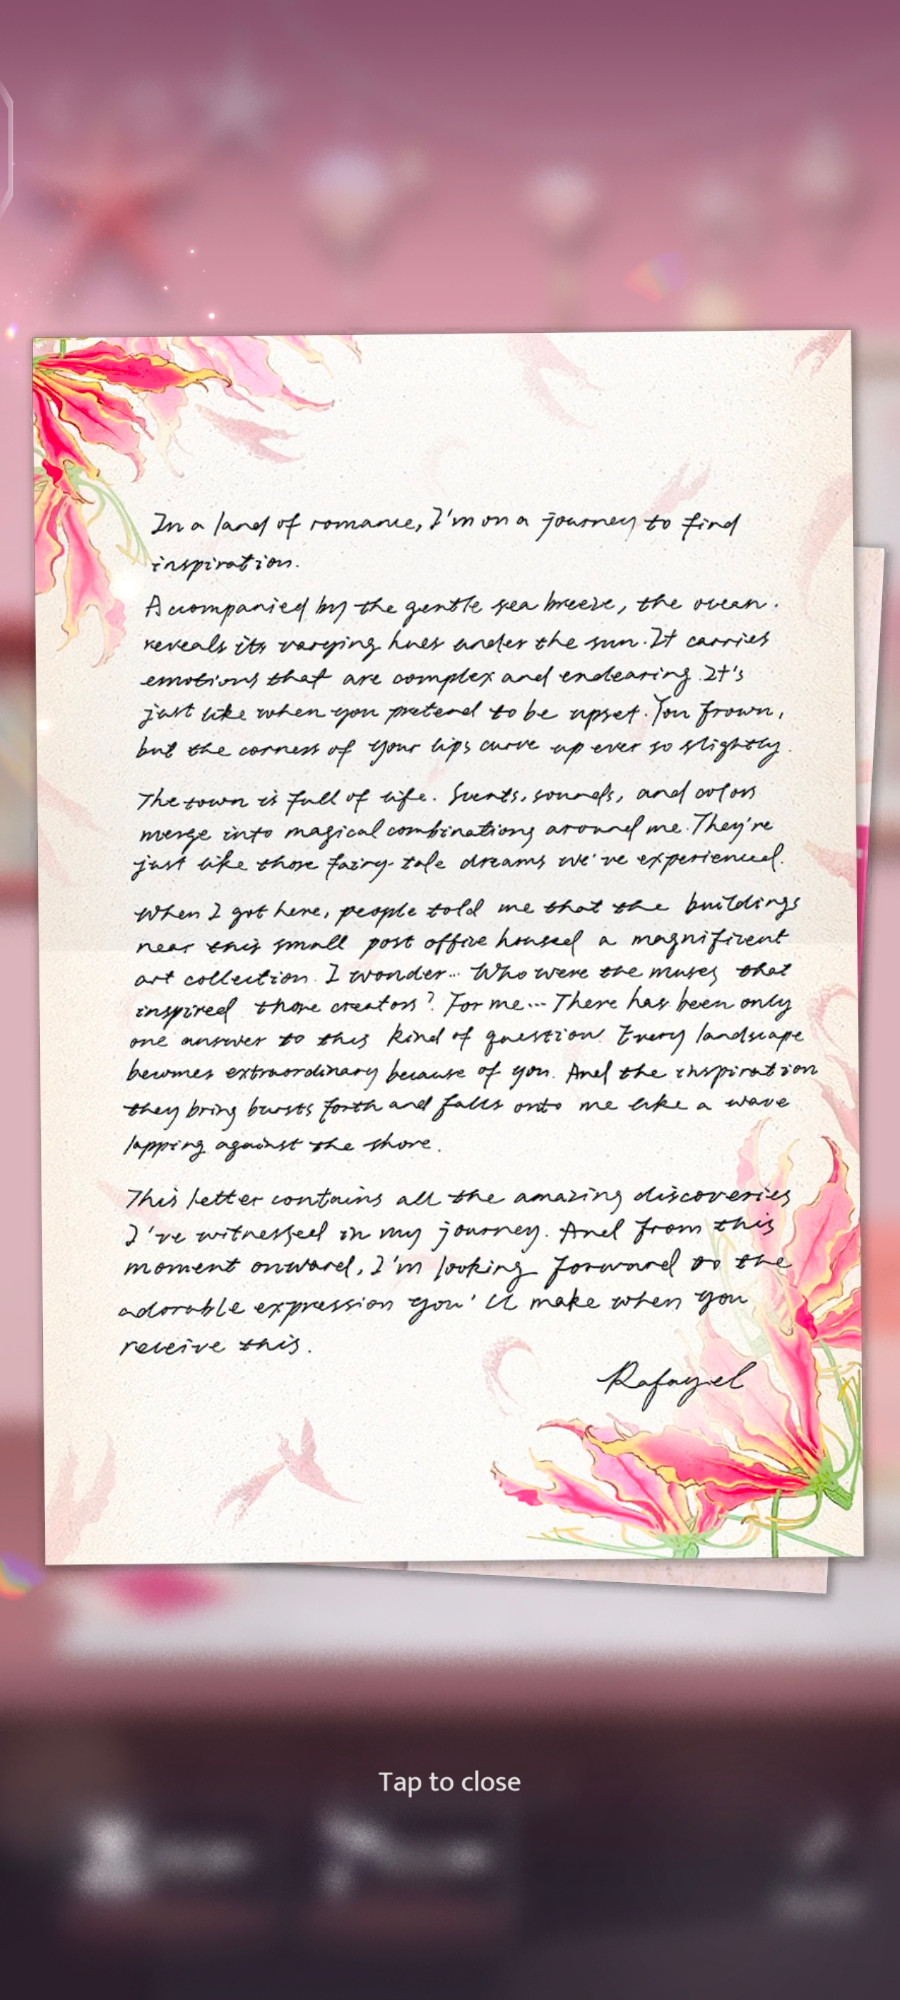 In a land of romance, I'm on a journey to find
inspiration.
Accompanied by the gentle sea breeze, the ocean
reveals its varying hues under the sun. It carries
emotions that are complex and endearing. It's
just like when you pretend to be upset. You frown,
but the corners of your lips curve up ever so slightly.
The town is full of life. Scents, sounds, and colors
merge into magical combinations around me. They're
just like those fairy-tale dreams we've experienced.
When I got here, people told me that the buildings
near this small post office housed a magnificent
art collection. I wonder... Who were the muses that
inspired those creators? For me... There has been only
one answer to this kind of question. Every landscape
becomes extraordinary because of you. And the inspiration
they bring bursts forth and falls onto me like a wave
lapping against the shore.
This letter contains all the amazing discoveries
I've witnessed in my journey. And from this
moment onward, I'm looking forward to the
adorable expression you'll make when you
receive this.
Rafayel
Tap to close